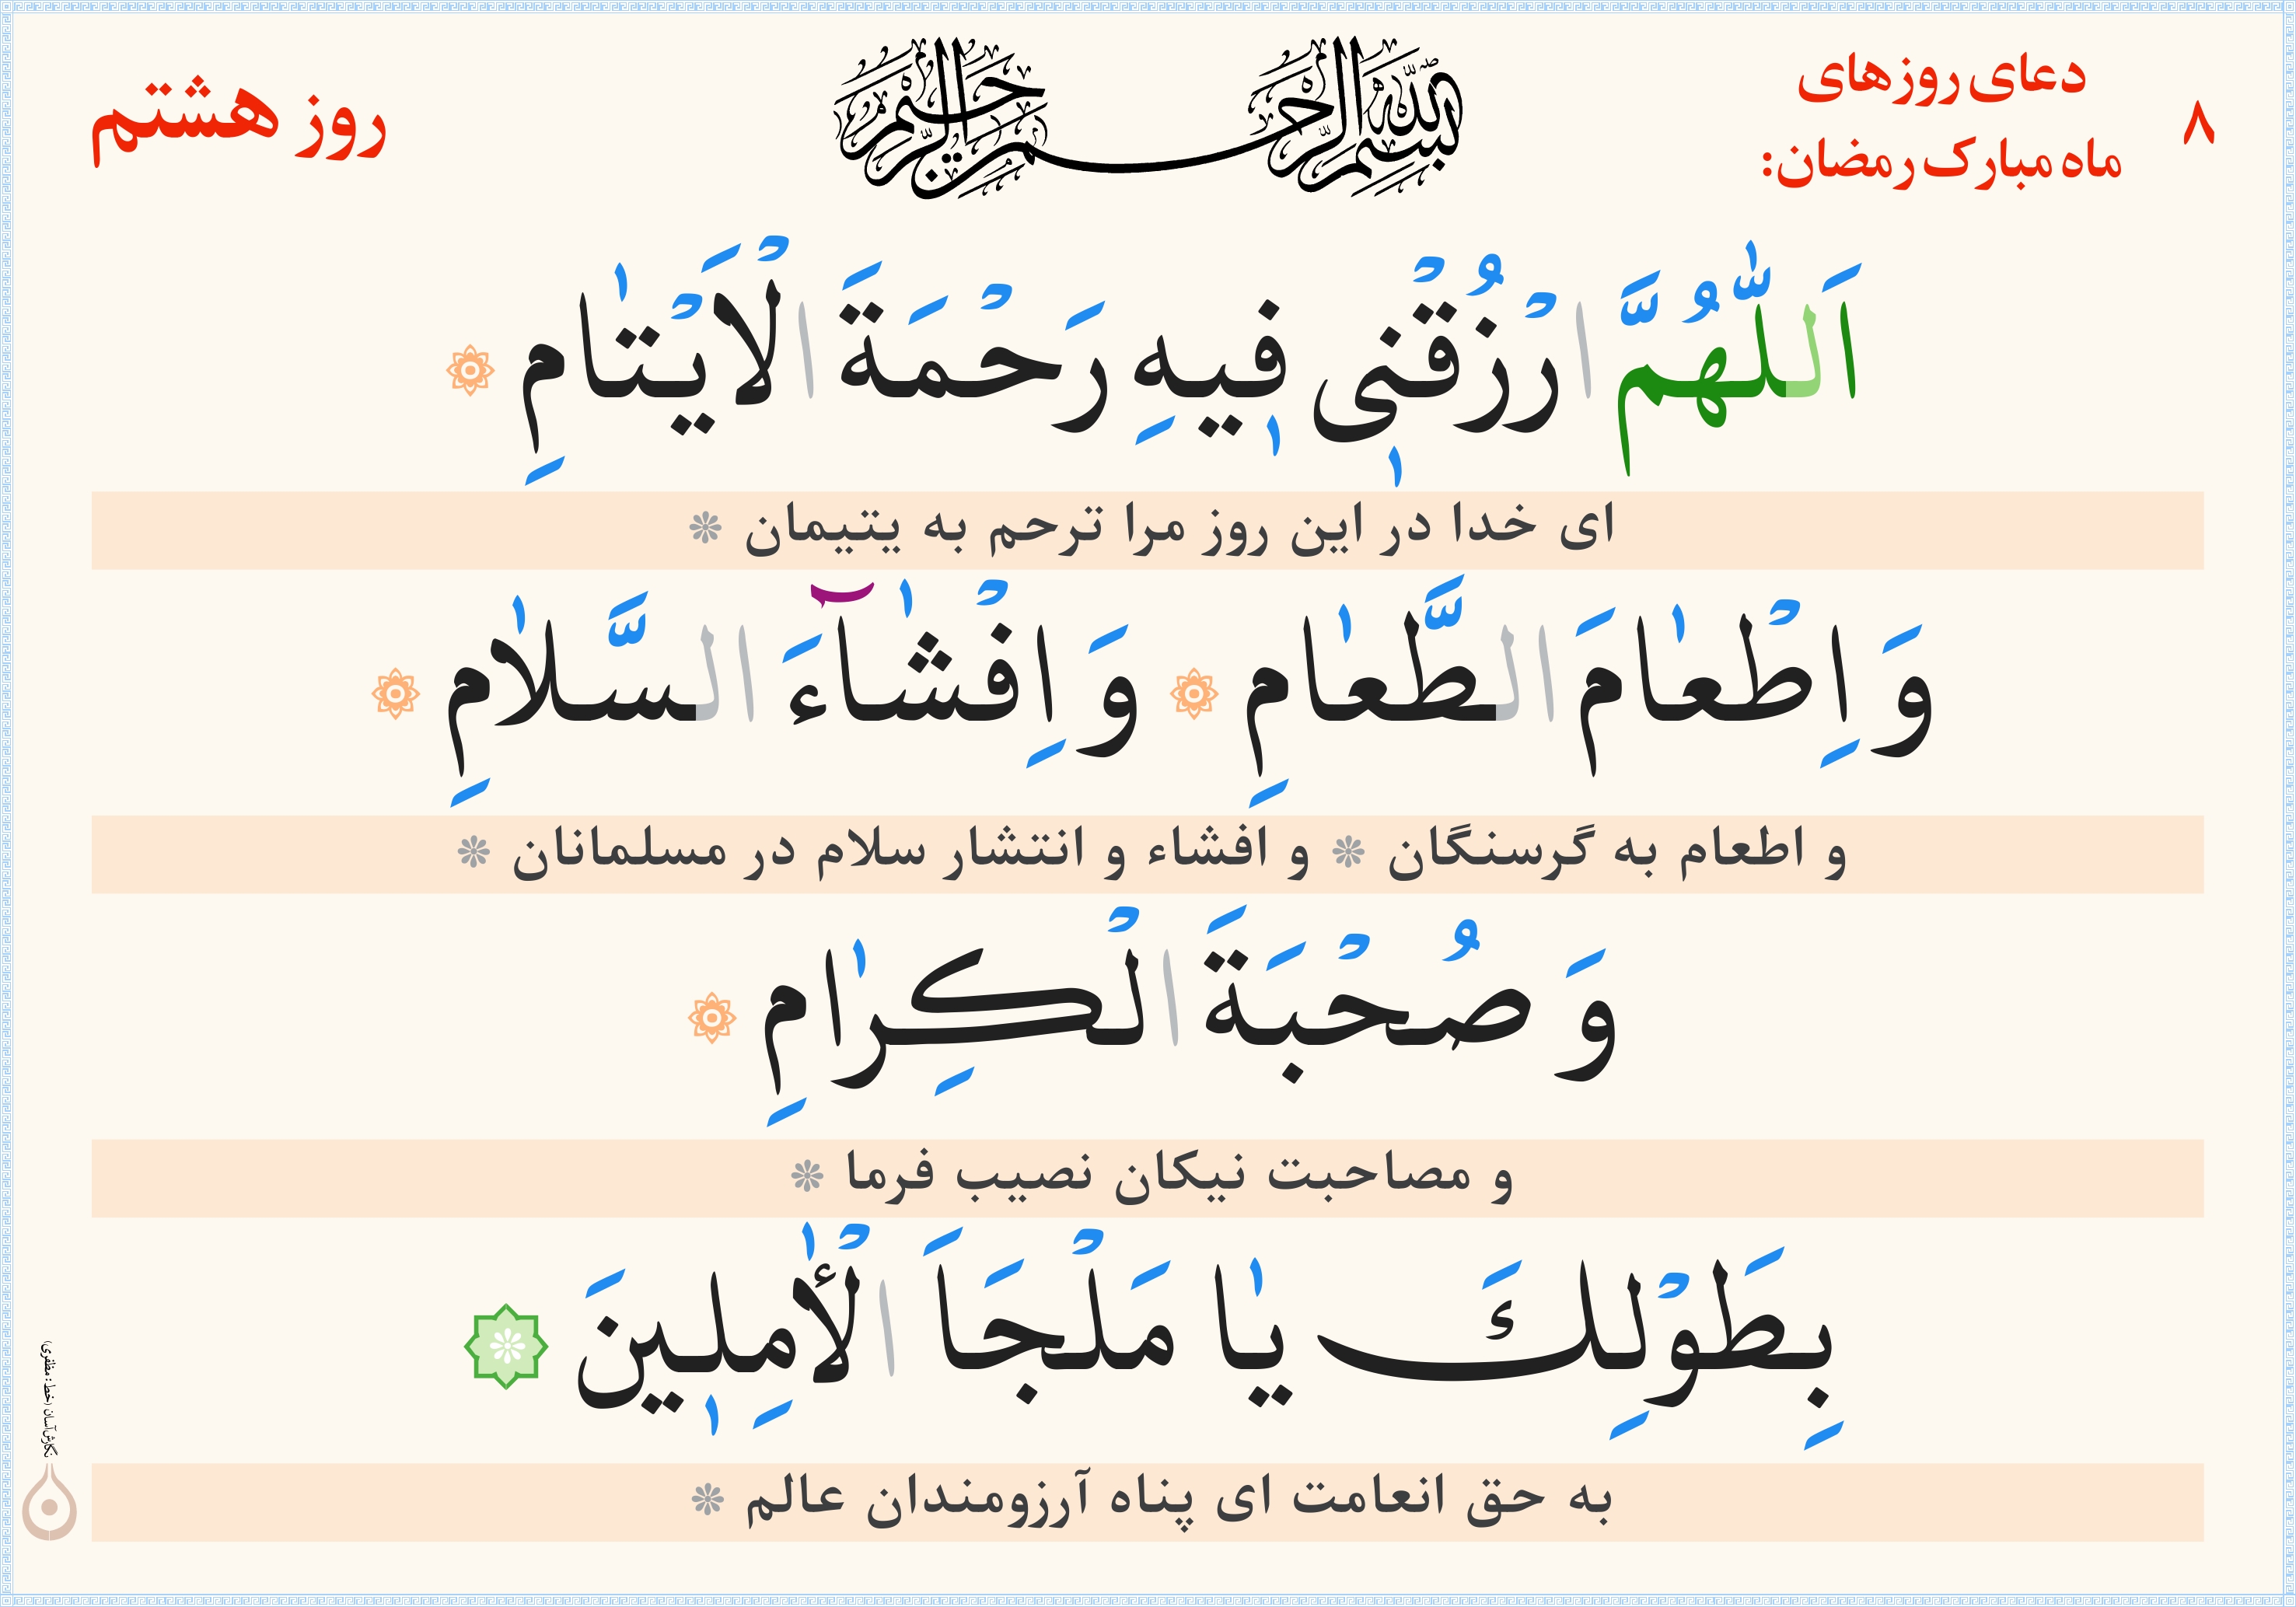 ۸
دعای روزهای
ماه مبارک رمضان:
بسم الله الرحمن الرحیم
روز هشتم
اَللّٰهُمَّ ارْزُقْنٖی فٖیهِ رَحْمَةَ الْاَیْتٰامِ
ای خدا در این روز مرا ترحم به یتیمان
وَ اِطْعٰامَ الطَّعٰامِ وَ اِفْشٰآءَ السَّلٰامِ
و اطعام به گرسنگان و افشاء و انتشار سلام در مسلمانان
وَ صُحْبَةَ الْکِرٰامِ
و مصاحبت نیکان نصیب فرما
بِطَوْلِكَ یٰا مَلْجَاَ الْأٰمِلٖینَ
به حق انعامت ای پناه آرزومندان عالم
نگارش آسان (خط: مظفری)